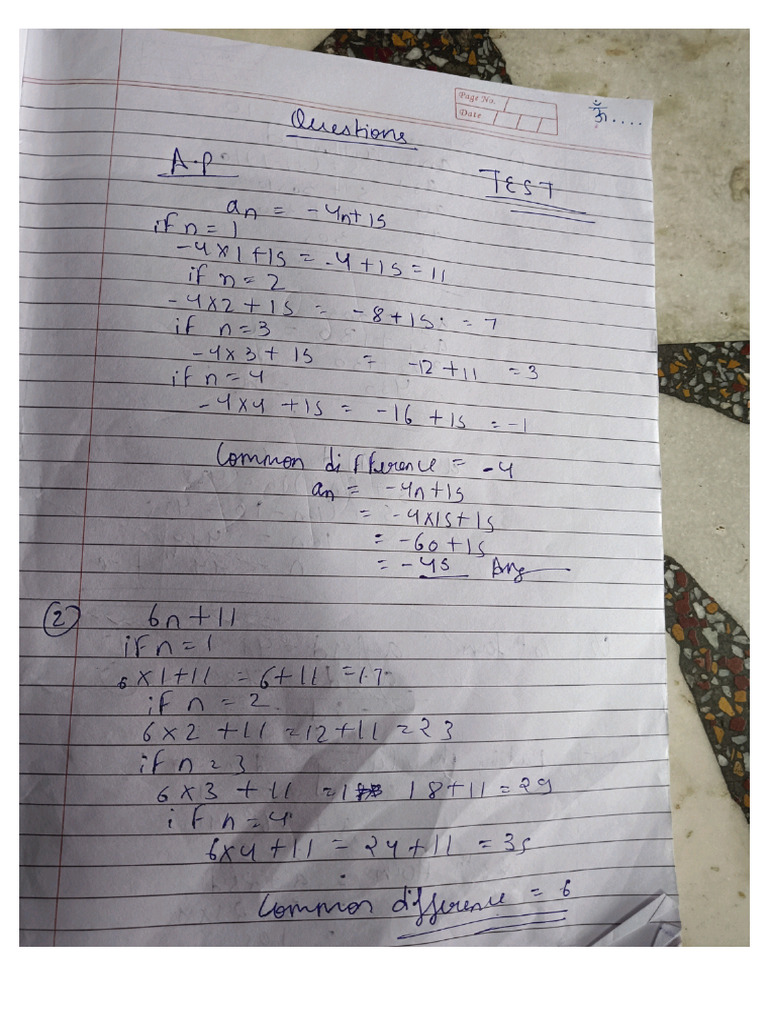 Page No.
Date
ॐ....
Questions
A.P.
TEST
an = -4n+15
if n = 1
-4×1+15 = -4+15 = 11
if n = 2
-4×2+15 = -8+15 = 7
if n=3
-4×3+15 = -12+11 = 3
if n=4
-4×4+15 = -16+15 = -1
Common difference = -4
an = -4n+15
= -4×15+15
= -60+15
= -45 Ans
② 6n+11
if n=1
6×1+11 = 6+11 = 17
if n = 2
6×2+11 = 12+11 = 23
if n=3
6×3+11 = 18+11 = 29
if n=4
6×4+11 = 24+11 = 35
Common difference = 6